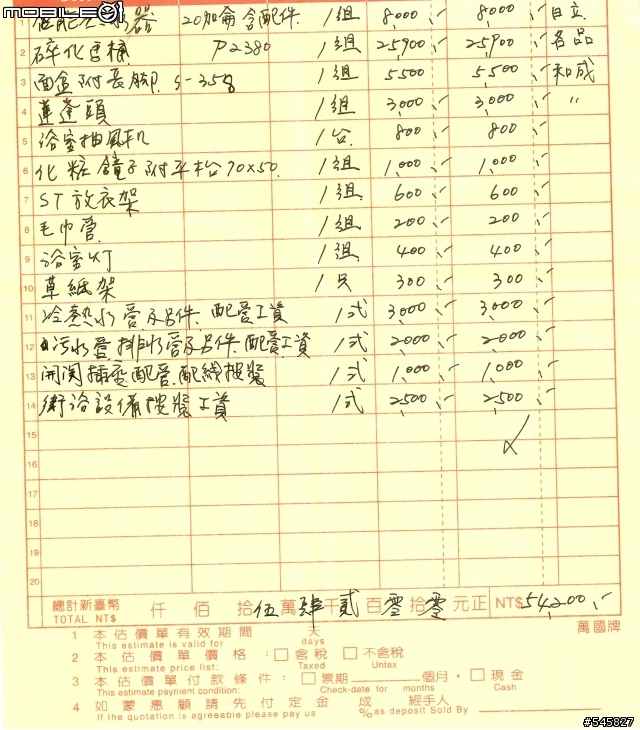 mobile01
1 器 20加侖含配件 1組 8000 8000 日立
2 碎化馬桶 P2380 1組 25900 25900 名品
3 面盆附長腳 S-35g 1組 5500 5500 和成
4 蓮蓬頭 1組 3000 3000 〃
5 浴室抽風机 1台 800 800
6 化粧鏡子附平枱70x50 1組 1,000 1,000
7 ST放衣架 1組 600 600
8 毛巾管 1組 200 200
9 浴室灯 1組 400 400
10 草紙架 1只 300 300
11 冷熱水管及另件.配管工資 1式 3000 3000
12 污水管排水管及另件.配管工資 1式 2000 2000
13 開関插座配管.配线按裝 1式 1,000 1,000
14 衛浴設備按裝工資 1式 2500 2500
15
16
17
18
19
20
總計新臺幣 仟 佰 拾伍萬肆千貳百零拾零元正 NT$54,200
TOTAL NT$
萬國牌
1 本估價單有效期間 天
This estimate is valid for days
2 本估價單價格：□含稅 □不含稅
This estimate price list: Taxed Untax
3 本估價單付款條件：□票期 個月・□現金
This estimate payment condition: Check-date for months Cash
4 如蒙惠顧請先付定金 成 經手人
If the quotation is agreeable please pay us % as deposit Sold By
#545027